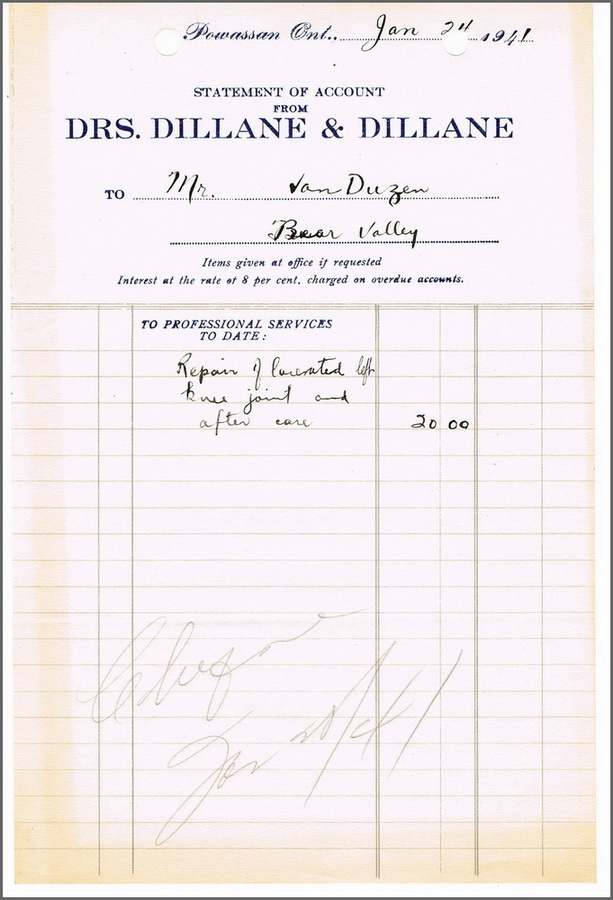 Powassan Ont.. Jan 24 1941
STATEMENT OF ACCOUNT
FROM
DRS. DILLANE & DILLANE
TO Mr. Van Duzen
Bear Valley
Items given at office if requested
Interest at the rate of 8 per cent. charged on overdue accounts.
TO PROFESSIONAL SERVICES
TO DATE:
Repair of lacerated left
knee joint and
after care 20 00
Jan 28/41